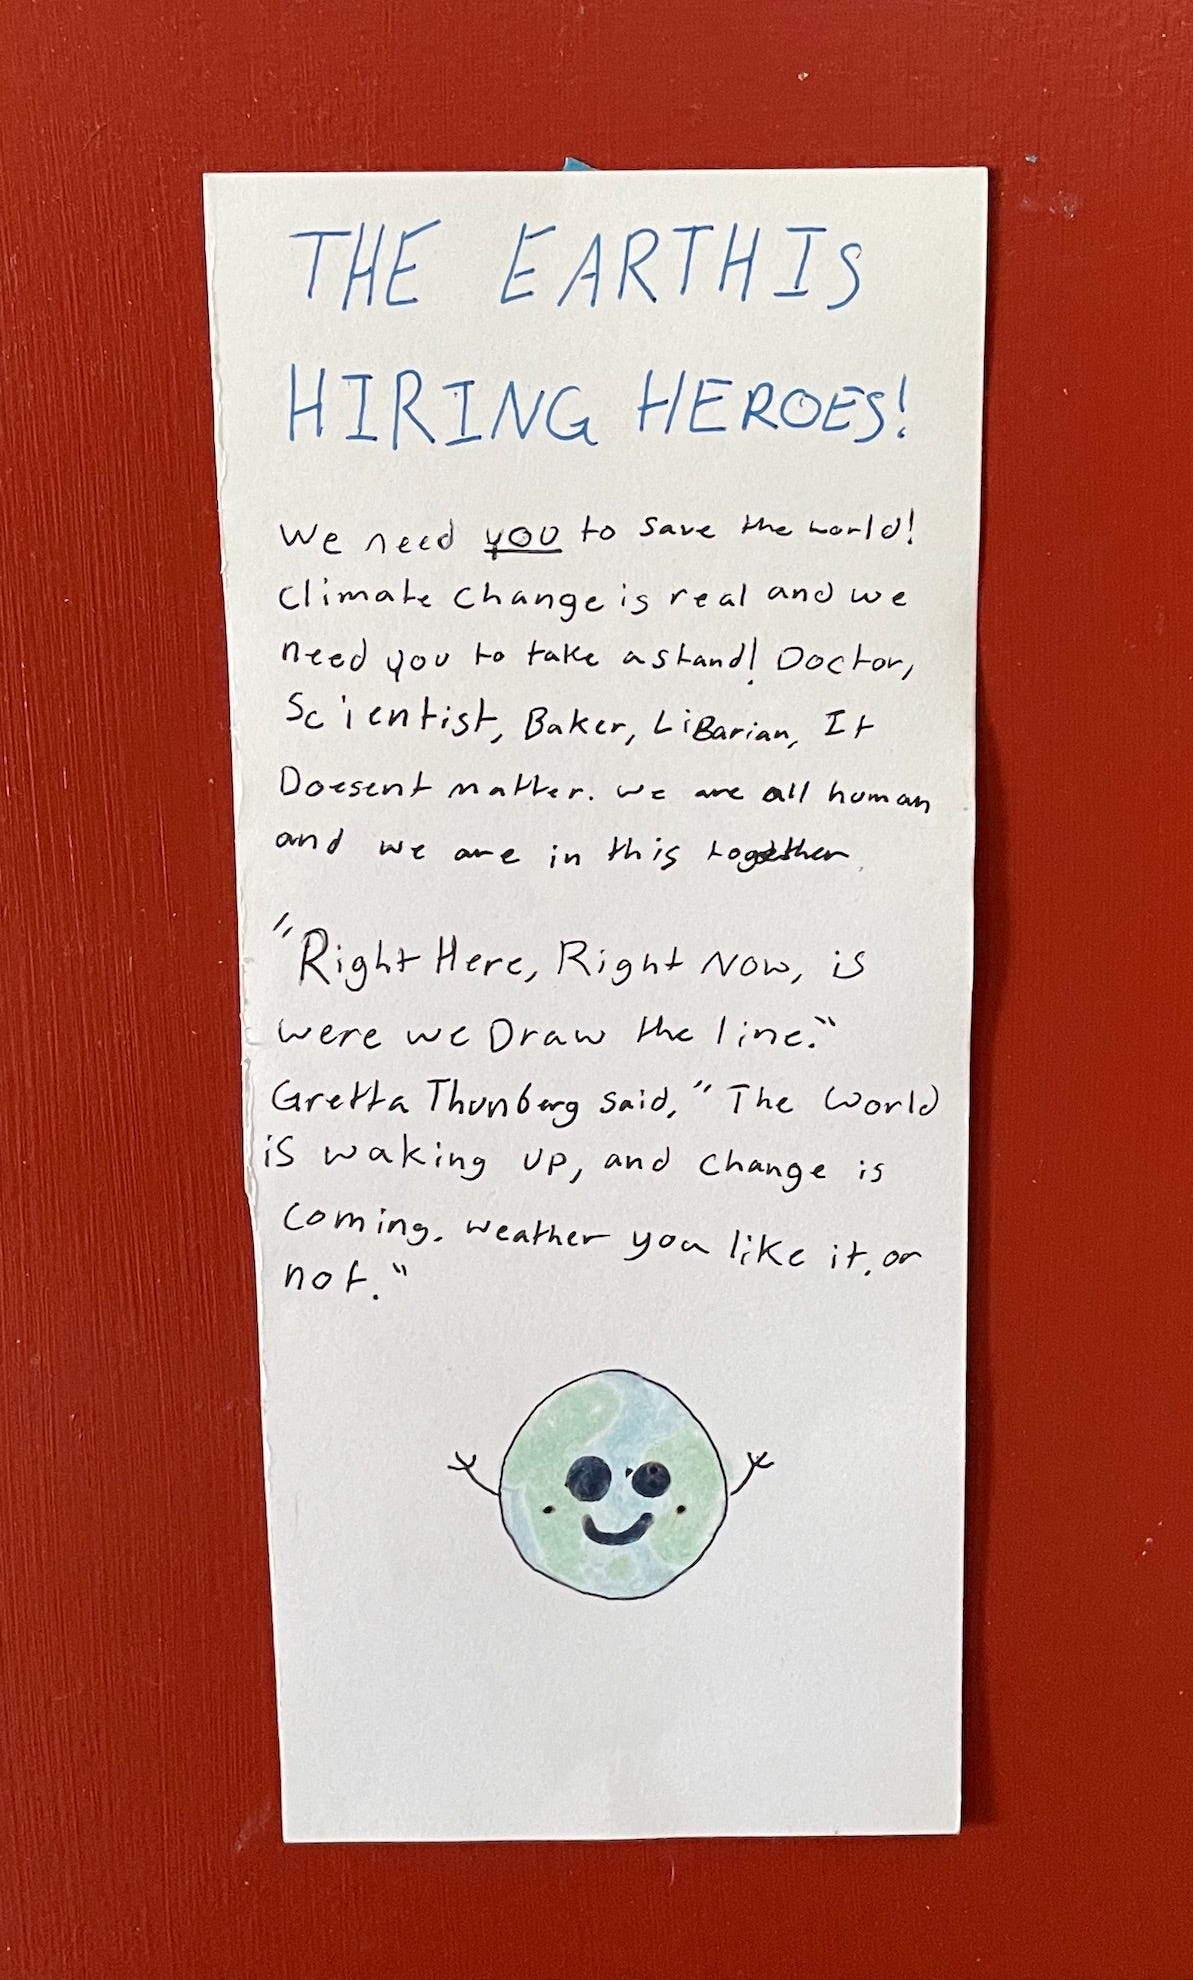 THE EARTH IS
HIRING HEROES!
We need you to save the world!
Climate change is real and we
need you to take a stand! Doctor,
Scientist, Baker, LiBarian, It
Doesent matter. we are all human
and we are in this together.
"Right Here, Right Now, is
were we Draw the line."
Gretta Thunberg said, "The world
is waking up, and change is
coming. weather you like it, or
not."